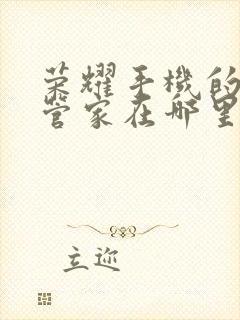 荣耀手機的
管家在哪里
立迩